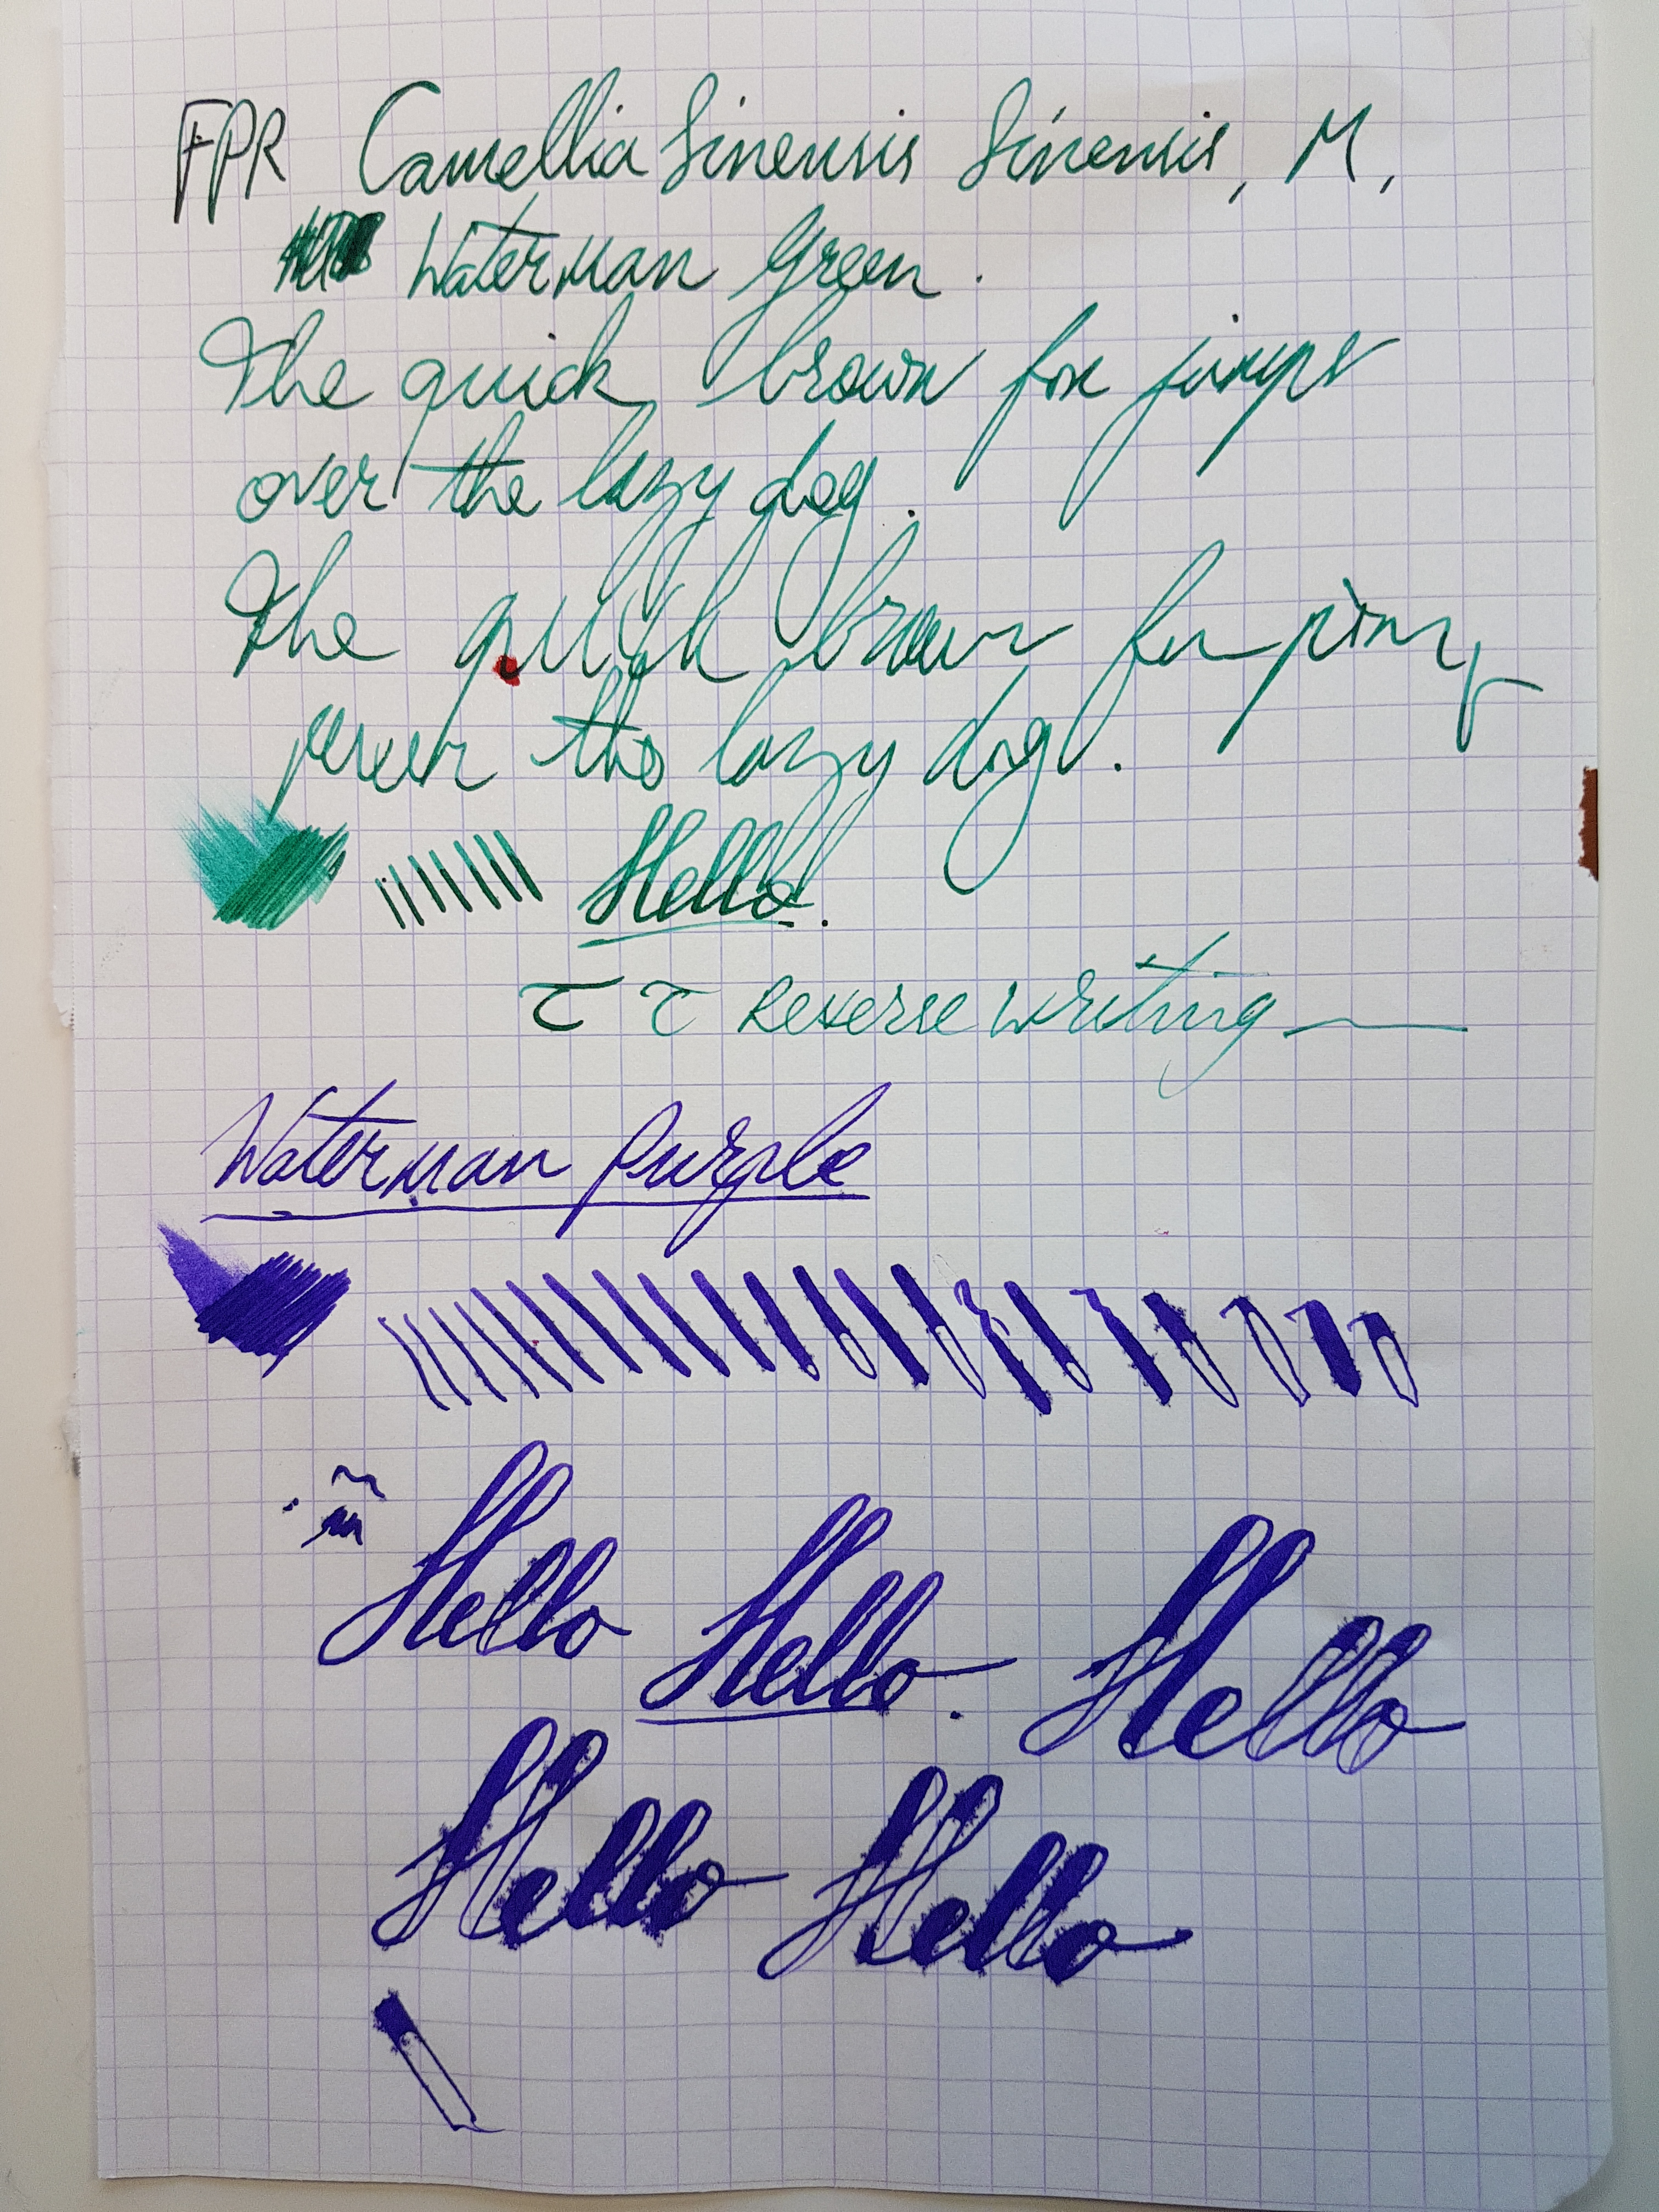 FPR Camellia Sinensis Sinensis, M,
Waterman Green.
The quick brown fox jumps
over the lazy dog.
The quick brown
the lazy dog.
Hello.
Reverse writing
Waterman Purple
Hello Hello. Hello
Hello Hello